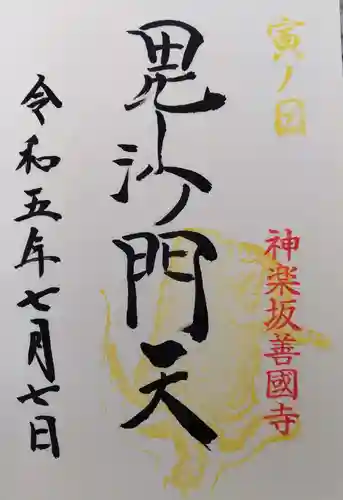 寅ノ日
神楽坂善國寺
毘沙門天
令和五年七月七日